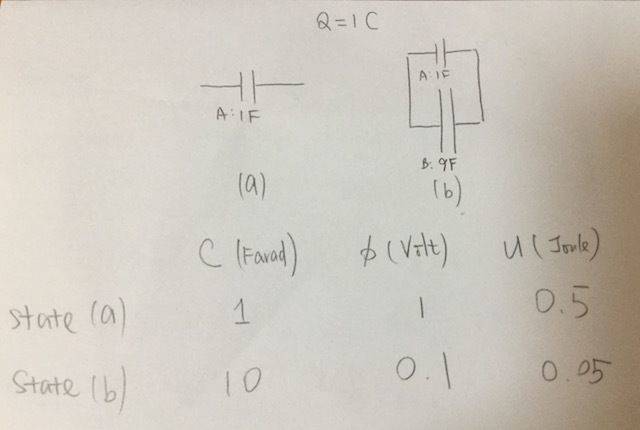 Q=1C
A:1F
A:1F
B:9F
(a)
(b)
C (Farad) ϕ (Volt) U (Joule)
state (a) 1 1 0.5
State (b) 10 0.1 0.05